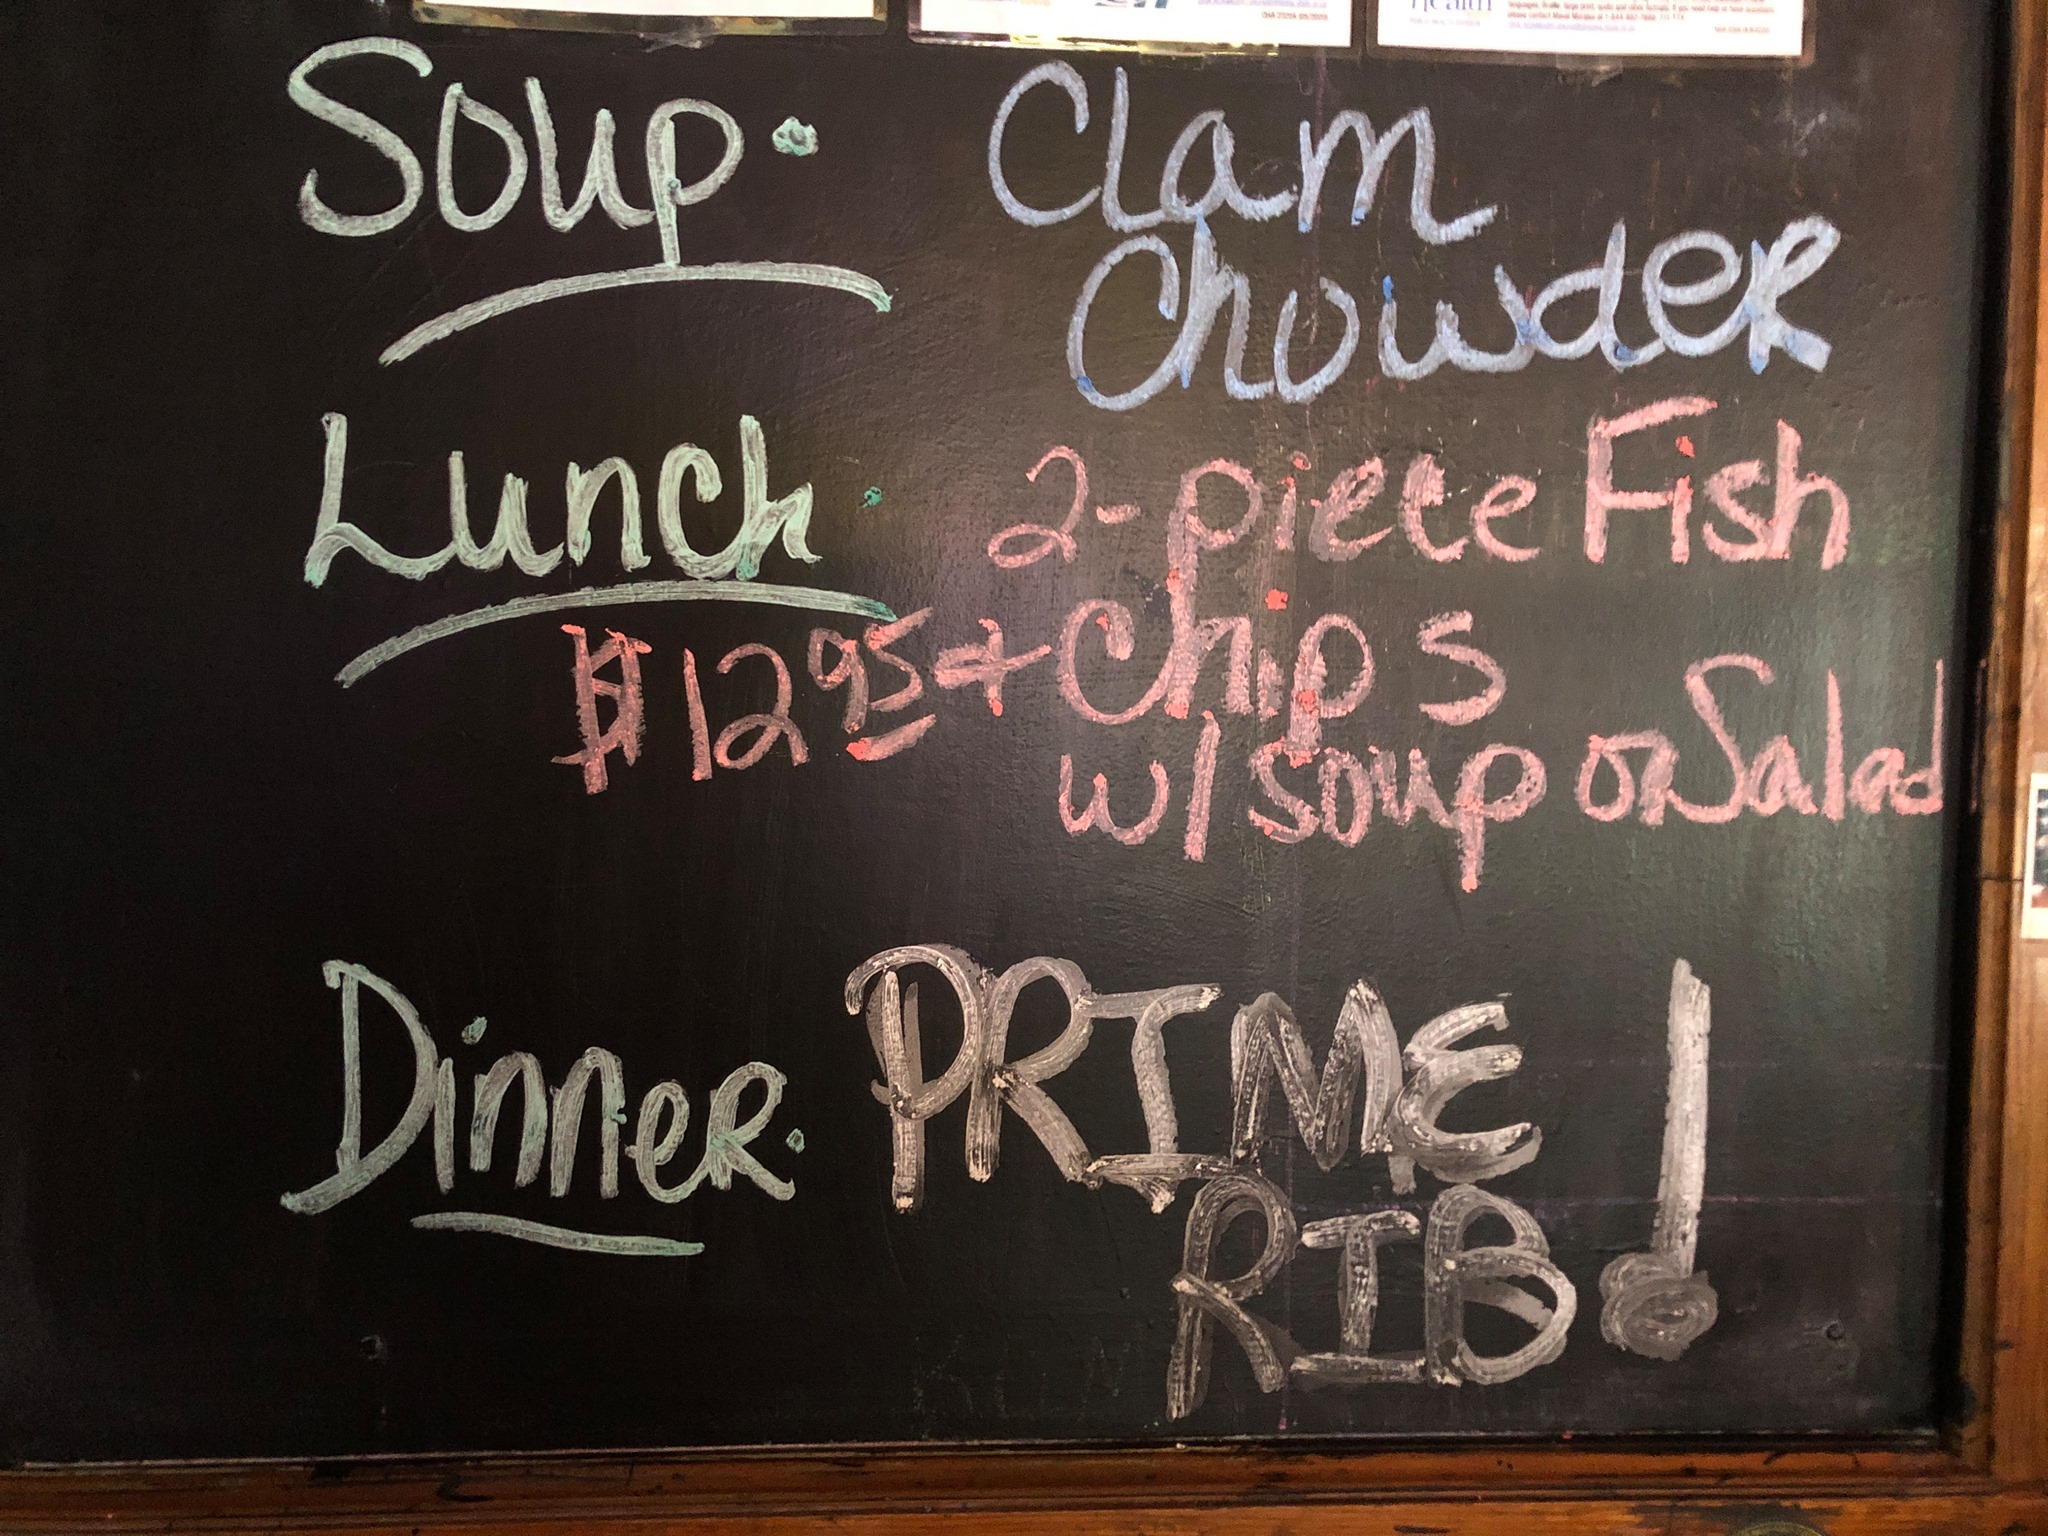 Health
Soup. Clam
Chowder
Lunch. 2-piece Fish
$12 95 & Chips
w/ soup or Salad
Dinner. PRIME
RIB!